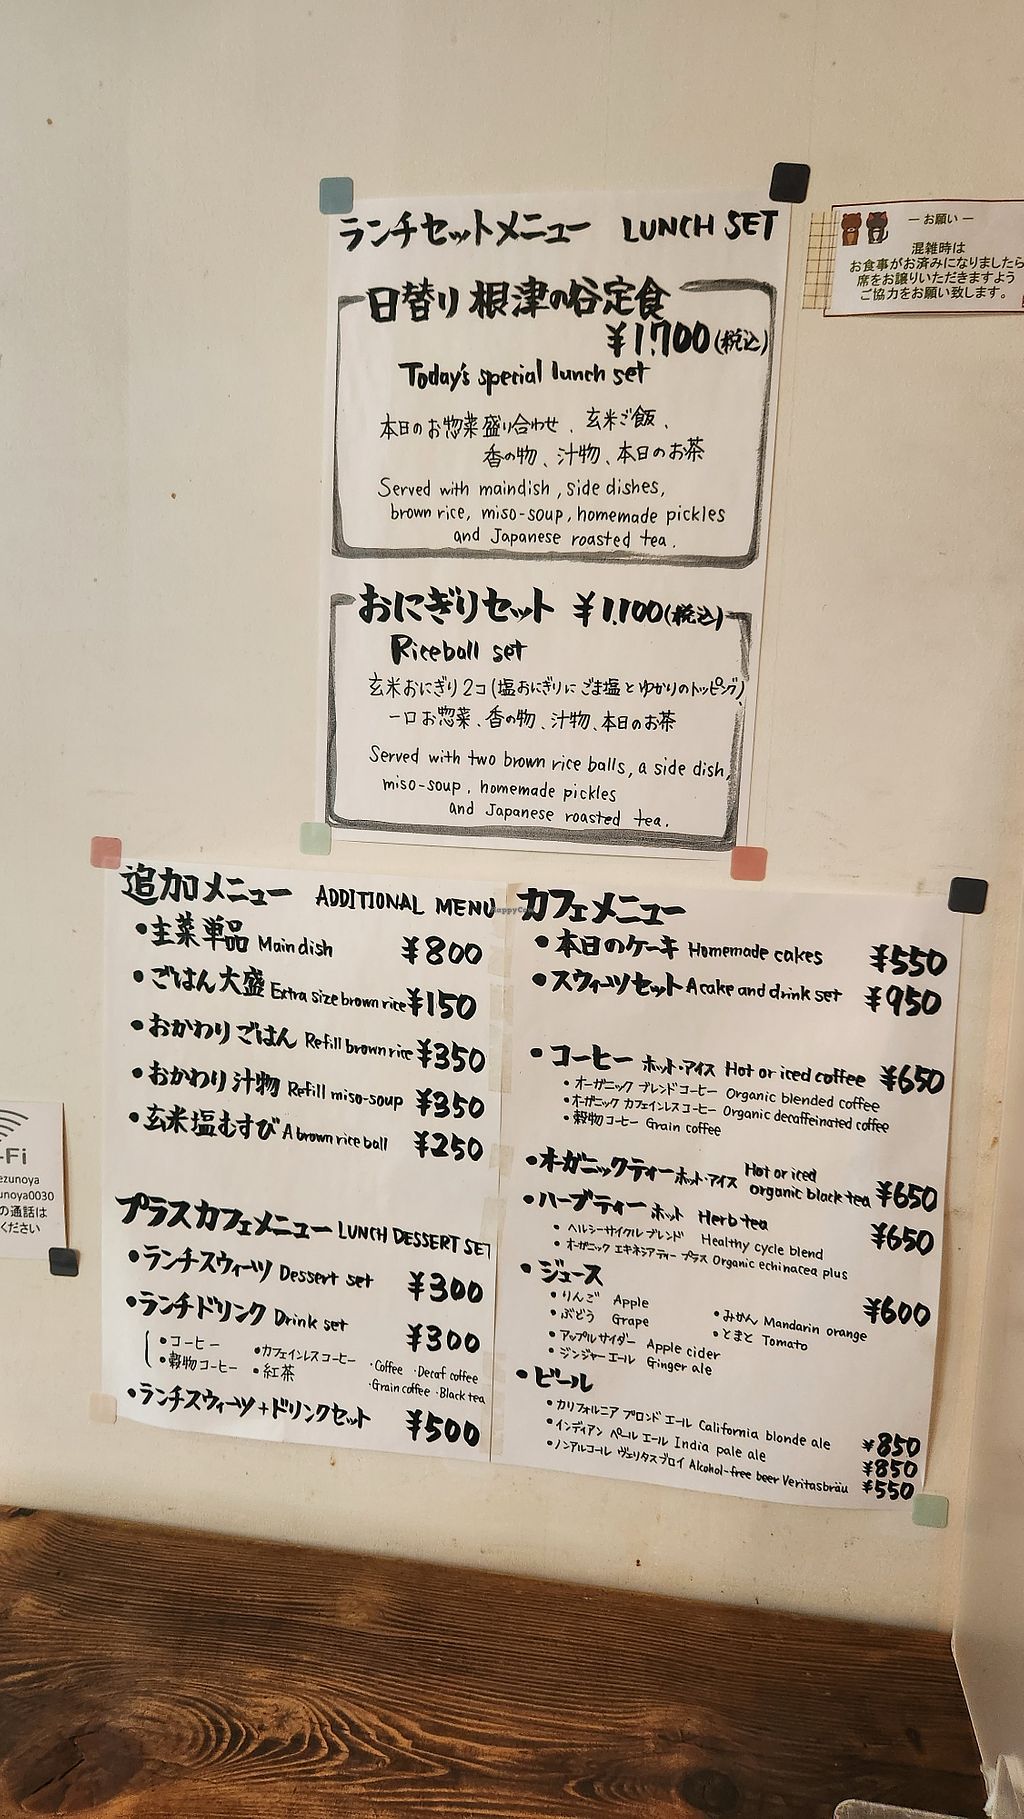 ランチセットメニュー LUNCH SET
日替り 根津の谷定食
¥1,700(税込)
Today's special lunch set
本日のお惣菜盛り合わせ、玄米ご飯、
香の物、汁物、本日のお茶
Served with maindish, side dishes,
brown rice, miso-soup, homemade pickles
and Japanese roasted tea.
おにぎりセット ¥1,100(税込)
Riceball set
玄米おにぎり2コ(塩おにぎりにごま塩とゆかりのトッピング)、
一口お惣菜、香の物、汁物、本日のお茶
Served with two brown rice balls, a side dish,
miso-soup, homemade pickles
and Japanese roasted tea.
ー お願い ー
混雑時は
お食事がお済みになりましたら
席をお譲りいただきますよう
ご協力をお願い致します。
追加メニュー ADDITIONAL MENU
•主菜単品 Main dish ¥800
•ごはん大盛 Extra size brown rice ¥150
•おかわりごはん Refill brown rice ¥350
•おかわり汁物 Refill miso-soup ¥350
•玄米塩むすび A brown rice ball ¥250
プラスカフェメニュー LUNCH DESSERT SET
•ランチスウィーツ Dessert set ¥300
•ランチドリンク Drink set ¥300
•コーヒー •カフェインレスコーヒー ·Coffee ·Decaf coffee
•穀物コーヒー •紅茶 ·Grain coffee ·Black tea
•ランチスウィーツ+ドリンクセット ¥500
HappyCow
カフェメニュー
•本日のケーキ Homemade cakes ¥550
•スウィーツセット A cake and drink set ¥950
•コーヒー ホット・アイス Hot or iced coffee ¥650
•オーガニック ブレンドコーヒー Organic blended coffee
•オーガニック カフェインレスコーヒー Organic decaffeinated coffee
•穀物コーヒー Grain coffee
•オーガニックティー ホット・アイス Hot or iced organic black tea ¥650
•ハーブティー ホット Herb tea ¥650
•ヘルシーサイクル ブレンド Healthy cycle blend
•オーガニック エキネシアティー プラス Organic echinacea plus
•ジュース ¥600
•りんご Apple •みかん Mandarin orange
•ぶどう Grape •とまと Tomato
•アップルサイダー Apple cider
•ジンジャーエール Ginger ale
•ビール
•カリフォルニア ブロンド エール California blonde ale ¥850
•インディアン ペール エール India pale ale ¥850
•ノンアルコール ヴェリタスブロイ Alcohol-free beer Veritasbräu ¥550
-Fi
ezunoya
unoya0030
の通話は
ください